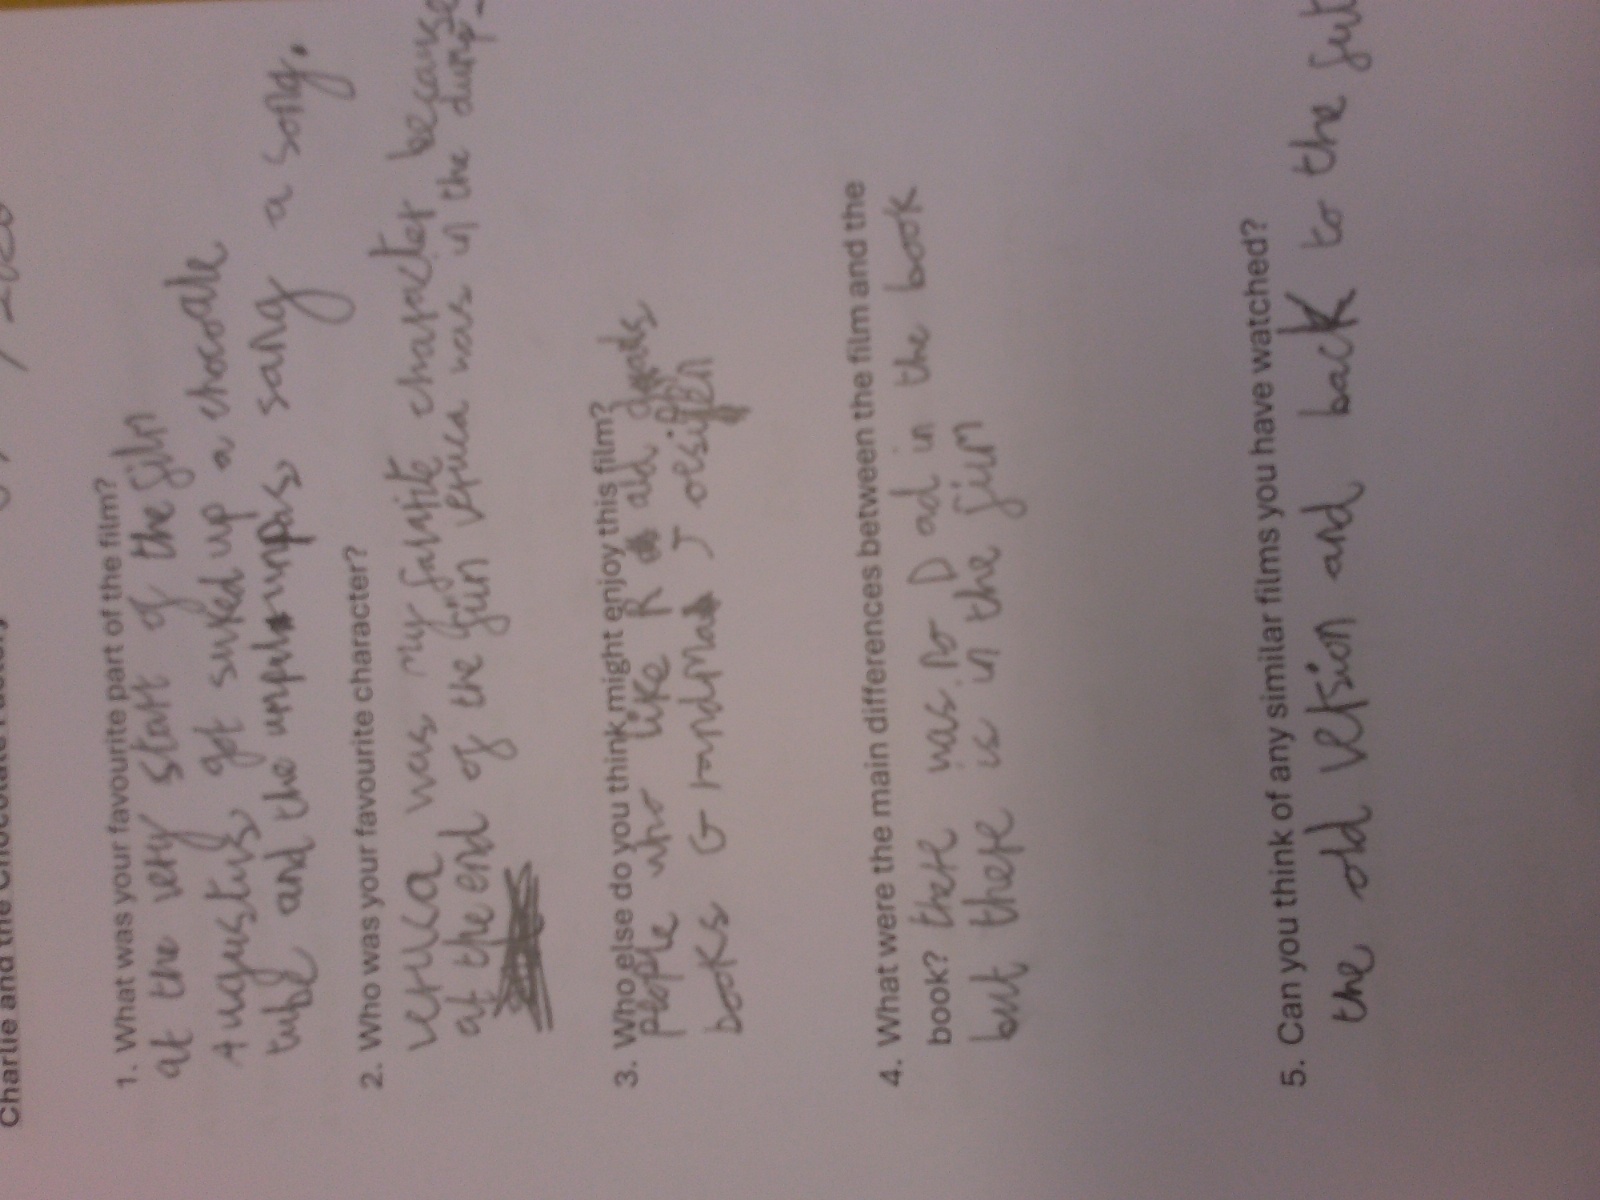 Charlie and the Chocolate Factory
1. What was your favourite part of the film?
at the very start of the film
Augustus got suked up a chocoale
tube and the umpulumpas sang a song.
2. Who was your favourite character?
veruca was my favrite character because
at the end of the film veruca was in the dump
3. Who else do you think might enjoy this film?
people who like R old
books Grandma J
4. What were the main differences between the film and the
book? there was no Dad in the book
but there is in the film
5. Can you think of any similar films you have watched?
the old version and back to the fut